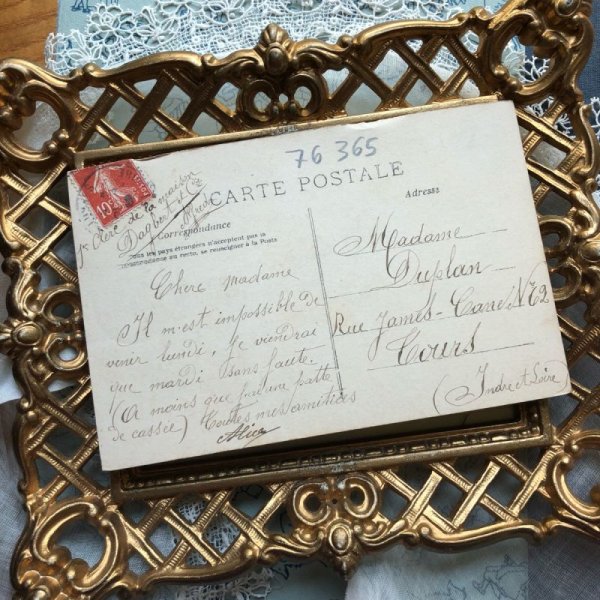 76 365
CARTE POSTALE
Chère de la maison
Correspondance
Tous les pays étrangers n'acceptent pas la
correspondance au recto, se renseigner à la Poste
Adresse
Chere madame
Il m'est impossible de
venir lundi, je viendrai
que mardi sans faute.
(A moins que j'ai une patte
de cassée) Toutes mes amitiés
Alice
Madame
Duplan
Rue James-Canel N: 2
Tours
(Indre et Loire)
10